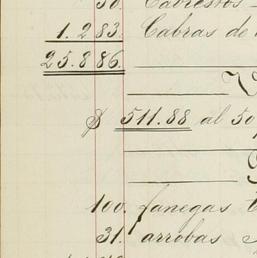 50. Cabrestos
1.283. Cabras de
25.886.
$ 511.88 al 50
100. fanegas
31. arrobas